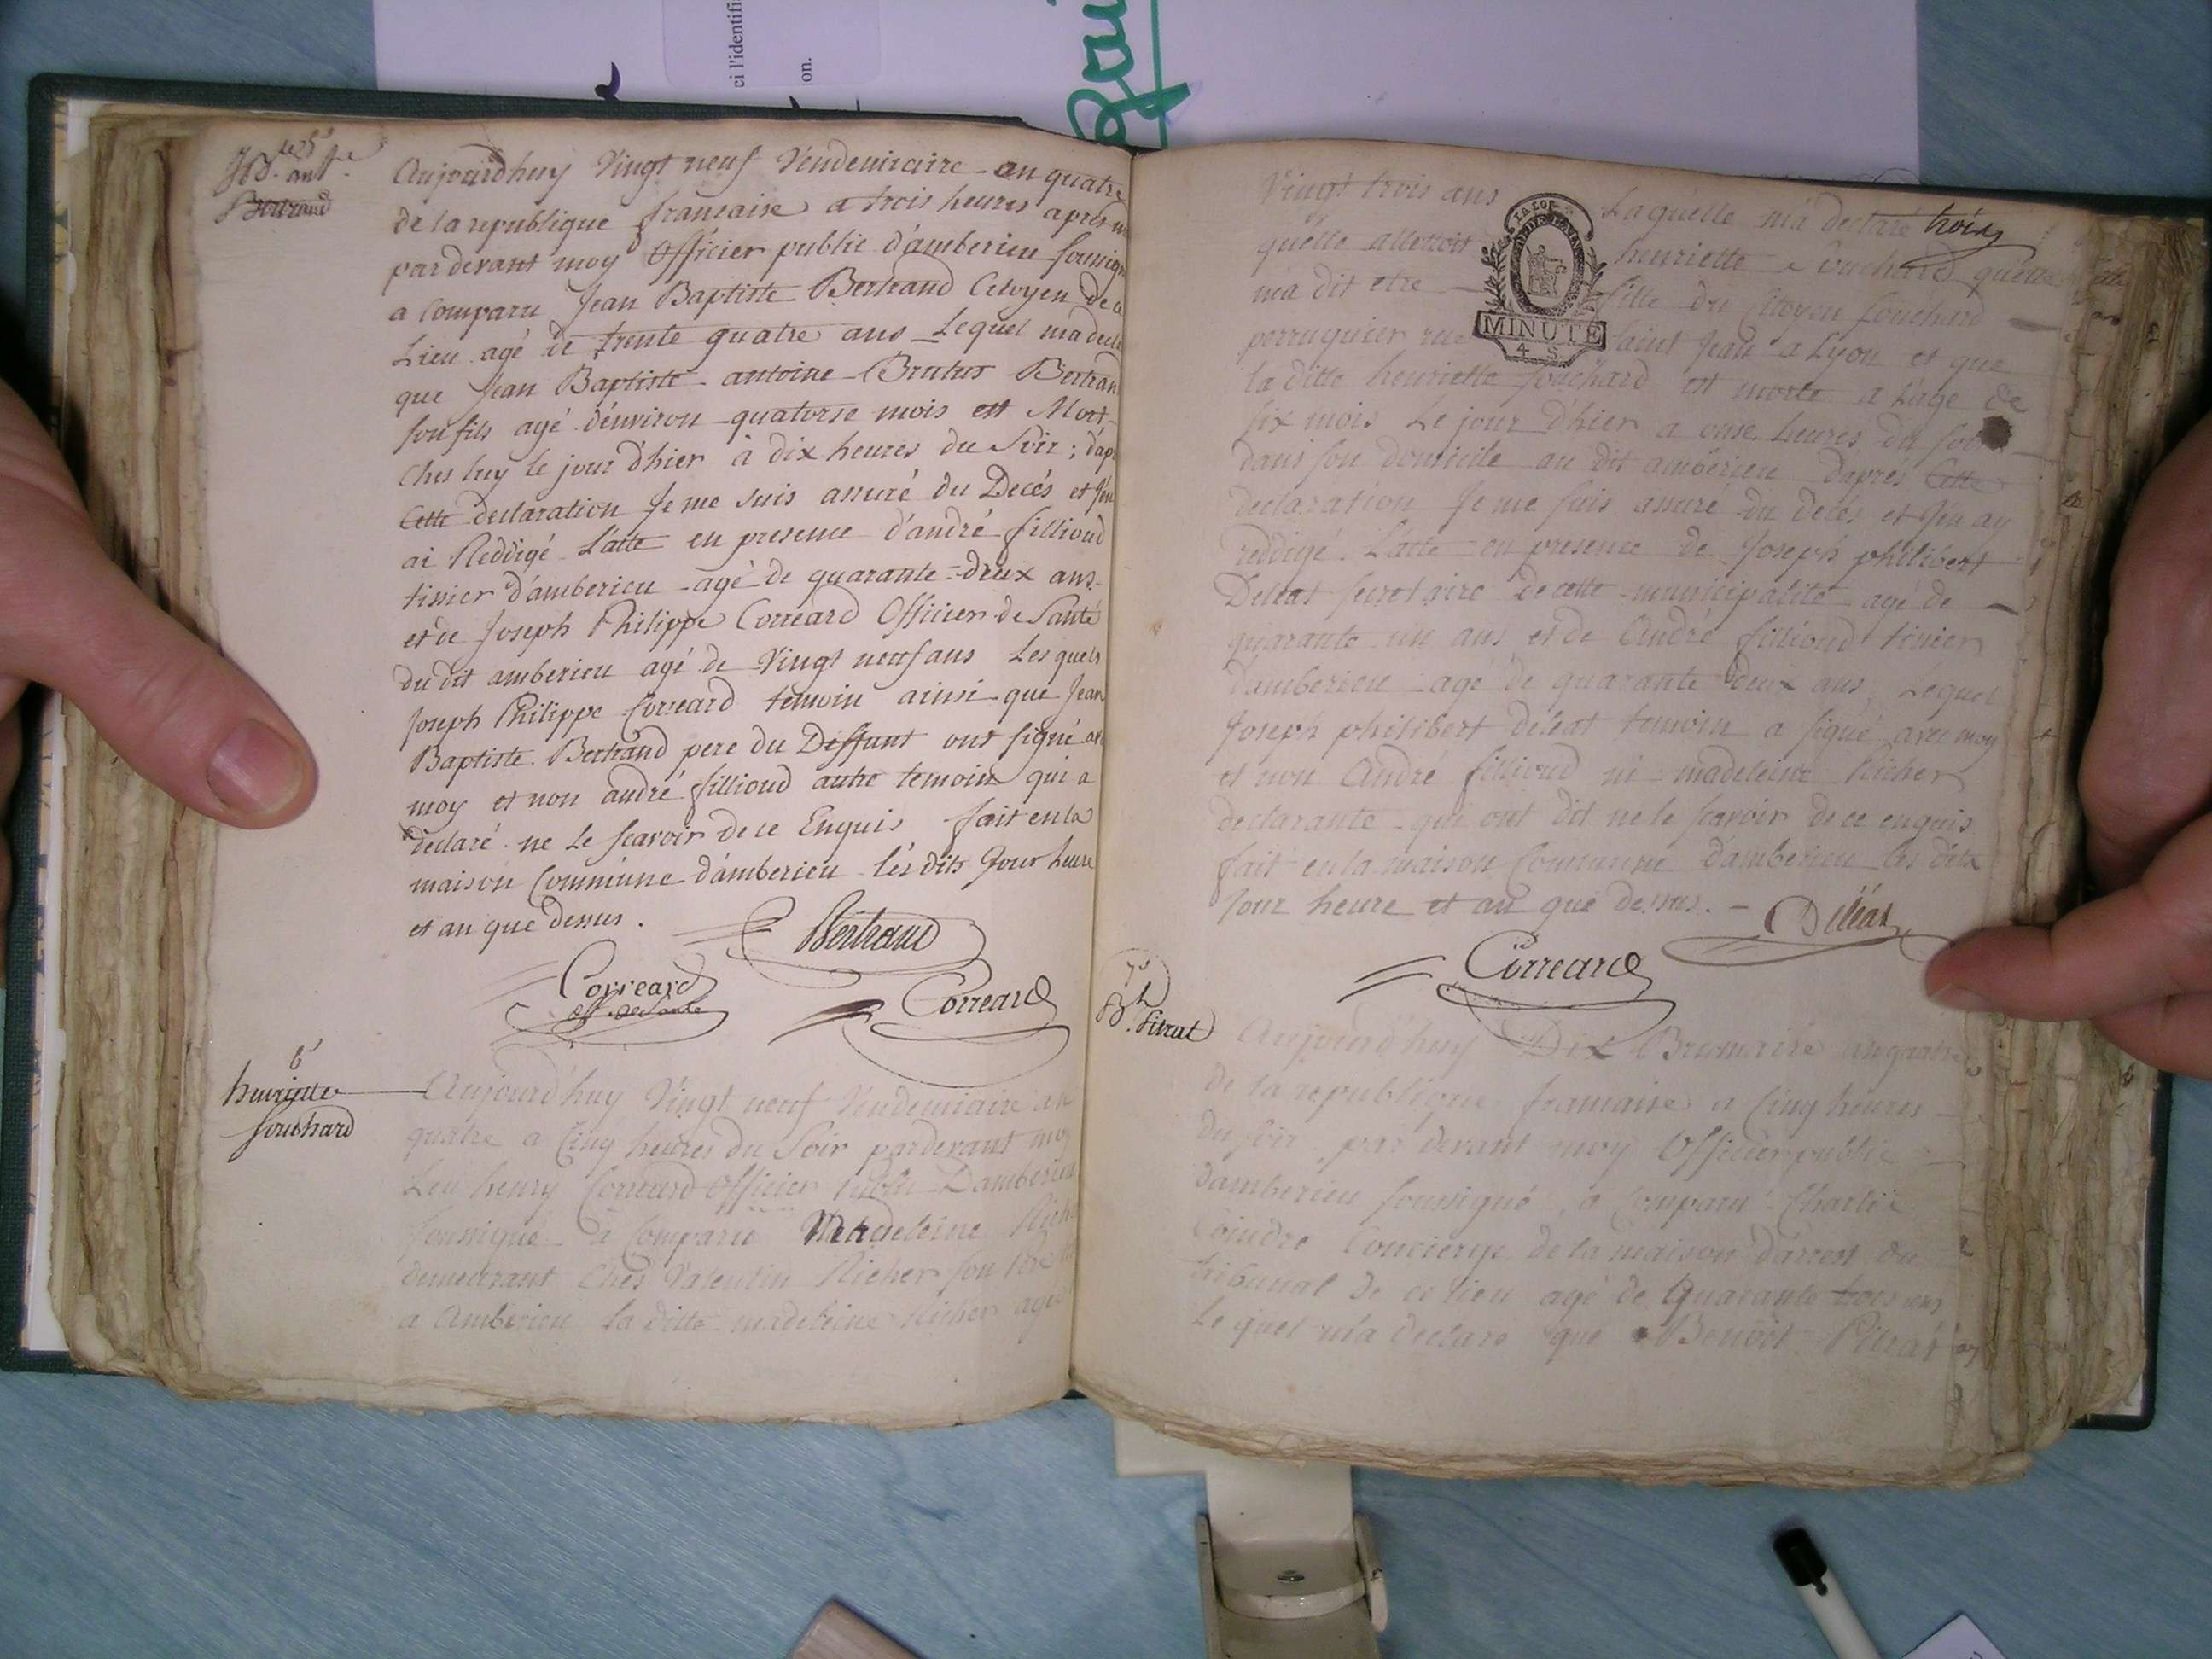 ci l'identifi
on.
5e
JB. ant.e
Bertrand
Aujourdhuy Vingt neuf Vendemiaire an quatre
de la republique francaise a trois heures apres m
par devant moy Officier public d'amberieu soussig
a Comparu Jean Baptiste Bertrand Citoyen de ce
Lieu agé de trente quatre ans Lequel ma decla
que Jean Baptiste antoine Brutus Bertrand
son fils agé d'environ quatorse mois est Mort
Ches luy le jour d'hier à dix heures du Soir ; d'apr
Cette declaration Je me suis assuré du Decés et J'en
ai Reddigé L'acte en presence d'andré fillioud
tissier d'amberieu agé de quarante=deux ans
et de Joseph Philippe Correard Officier de Santé
du dit amberieu agé de Vingt neuf ans Les quels
Joseph Philippe Correard temoin ainsi que Jean
Baptiste Bertrand pere du Deffunt ont signé av
moy et non andré fillioud autre temoin qui a
declaré ne le scavoir de ce Enquis fait en la
maison Commune d'amberieu les dits Jour heure
et an que dessus.
Bertrand
Correard
off. de Sante
Correard
6e
henriette
souchard
Aujourd'huy Vingt neuf Vendemiaire an
quatre a Cinq heures du Soir pardevant moy
Leu henry Correard Officier Public D'amberieu
soussigné a Comparu Madeleine Rich
demeurant Ches Valentin Richer son
a Amberieu la ditte madeleine Richer agé
Vingt trois ans Laquelle m'a declaré trois
quelle allettoit henriette Souchard quelle
m'a dit etre fille du Citoyen souchard
perruquier rue Saint Jean a Lyon et que
la ditte henriette souchard est morte a L'age de
six mois Le jour d'hier a onse heures du soir
dans son domicile au dit amberieu D'apres Cette
declaration Je me suis assuré du decés et J'en ay
reddigé L'acte en presence de Joseph philibert
Deléas secretaire de cette municipalité agé de
quarante un ans et de André fillioud tissier
d'amberieu agé de quarante deux ans, Lequel
Joseph philibert deléas temoin a signé avec moy
et non André fillioud ni madeleine Richer
declarante qui ont dit ne le scavoir de ce enquis
fait en la maison Commune d'amberieu les dits
Jour heure et an que dessus.
Déléas
Correard
LA LOI
MINUTE
4 S
7e
Bt. Pitrat
Aujourd'huy Dix Brumaire an quatre
de la republique francaise a Cinq heures
du soir par devant moy Officier public
d'amberieu soussigné, a Comparu Charle
Coindre Concierge de la maison d'arrest du
tribunal de ce lieu agé de Quarante trois ans
Le quel m'a declaré que Benoit Pitrat